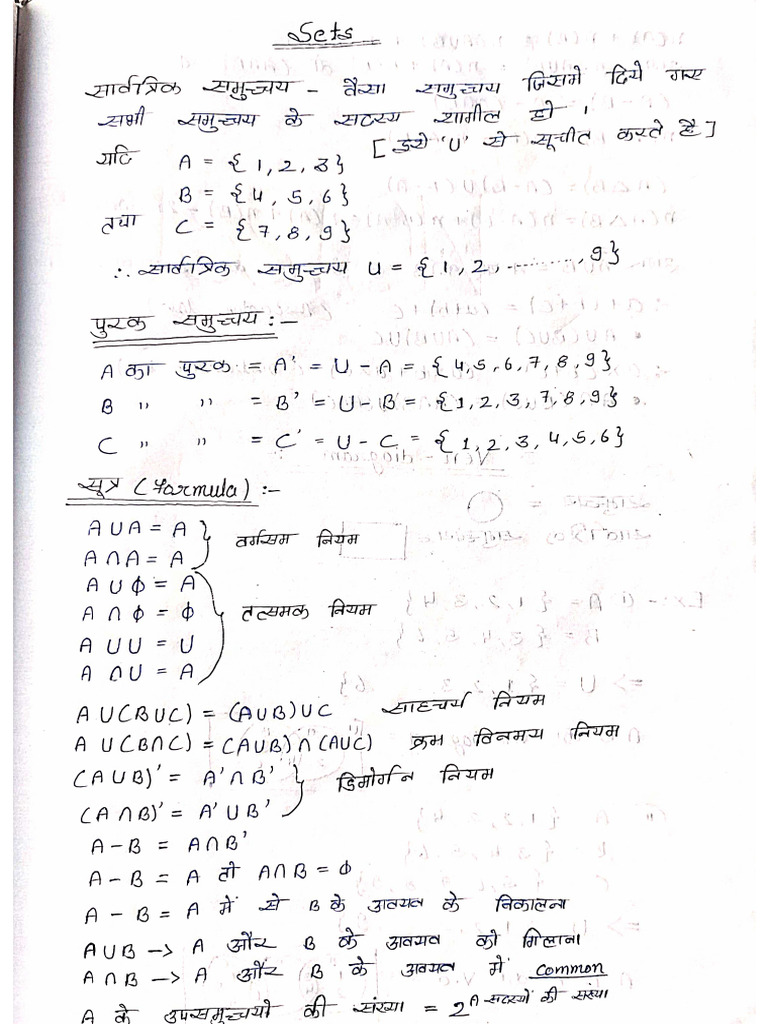 Sets
सार्वत्रिक समुच्चय - वैसा समुच्चय जिसमे दिये गए
सभी समुच्चय के सदस्य शामील हो ।
यदि A = {1, 2, 3} [इसे 'U' से सूचीत करते है]
B = {4, 5, 6}
तथा C = {7, 8, 9}
∴ सार्वत्रिक समुच्चय U = {1, 2, ........, 9}
पुरक समुच्चय :-
A का पुरक = A' = U - A = {4, 5, 6, 7, 8, 9}
B " " = B' = U - B = {1, 2, 3, 7, 8, 9}
C " " = C' = U - C = {1, 2, 3, 4, 5, 6}
सूत्र (Formula) :-
A ∪ A = A
A ∩ A = A } वर्गसम नियम
A ∪ ϕ = A
A ∩ ϕ = ϕ } तत्समक नियम
A ∪ U = U
A ∩ U = A
A ∪ (B ∪ C) = (A ∪ B) ∪ C साहचर्य नियम
A ∪ (B ∩ C) = (A ∪ B) ∩ (A ∪ C) क्रम विनमय नियम
(A ∪ B)' = A' ∩ B' } डिमोर्गन नियम
(A ∩ B)' = A' ∪ B'
A - B = A ∩ B'
A - B = A तो A ∩ B = ϕ
A - B = A में से B के अवयव के निकालना
A ∪ B -> A और B के अवयव को मिलाना
A ∩ B -> A और B के अवयव में common
A के उपसमुच्चयो की संख्या = 2^A सदस्यों की संख्या